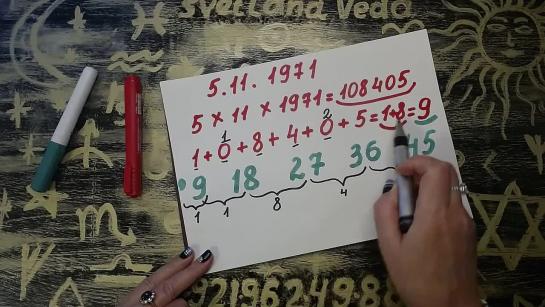 Svetlana Veda
5.11.1971
5 × 11 × 1971 = 108405
1 2
1+0+8+4+0+5=1+8=9
9 18 27 36 45
1 1 8 4
9219624988